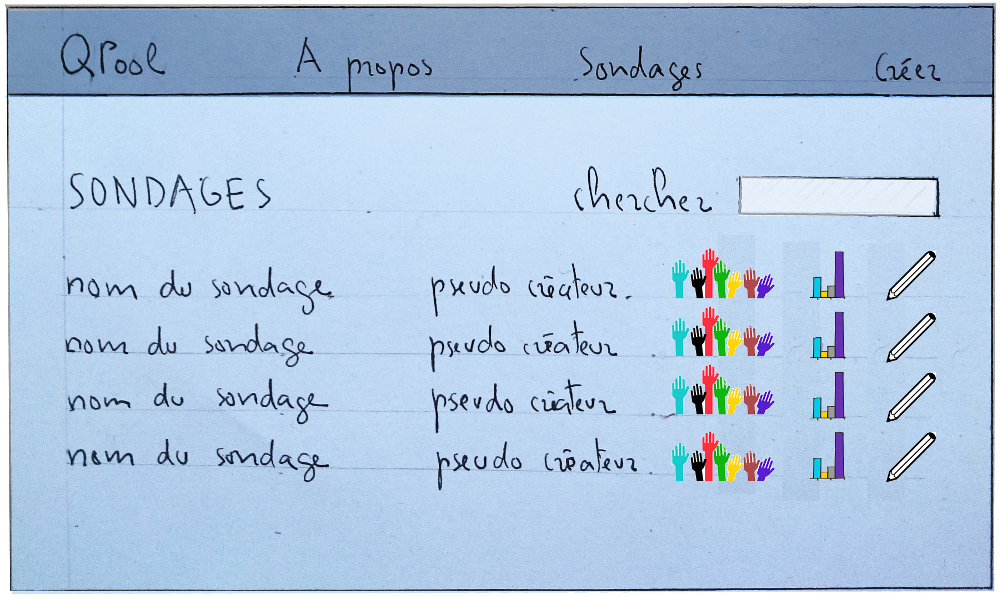 QPool A propos Sondages Créer
SONDAGES chercher
nom du sondage pseudo créateur.
nom du sondage pseudo créateur
nom du sondage pseudo créateur
nom du sondage pseudo créateur